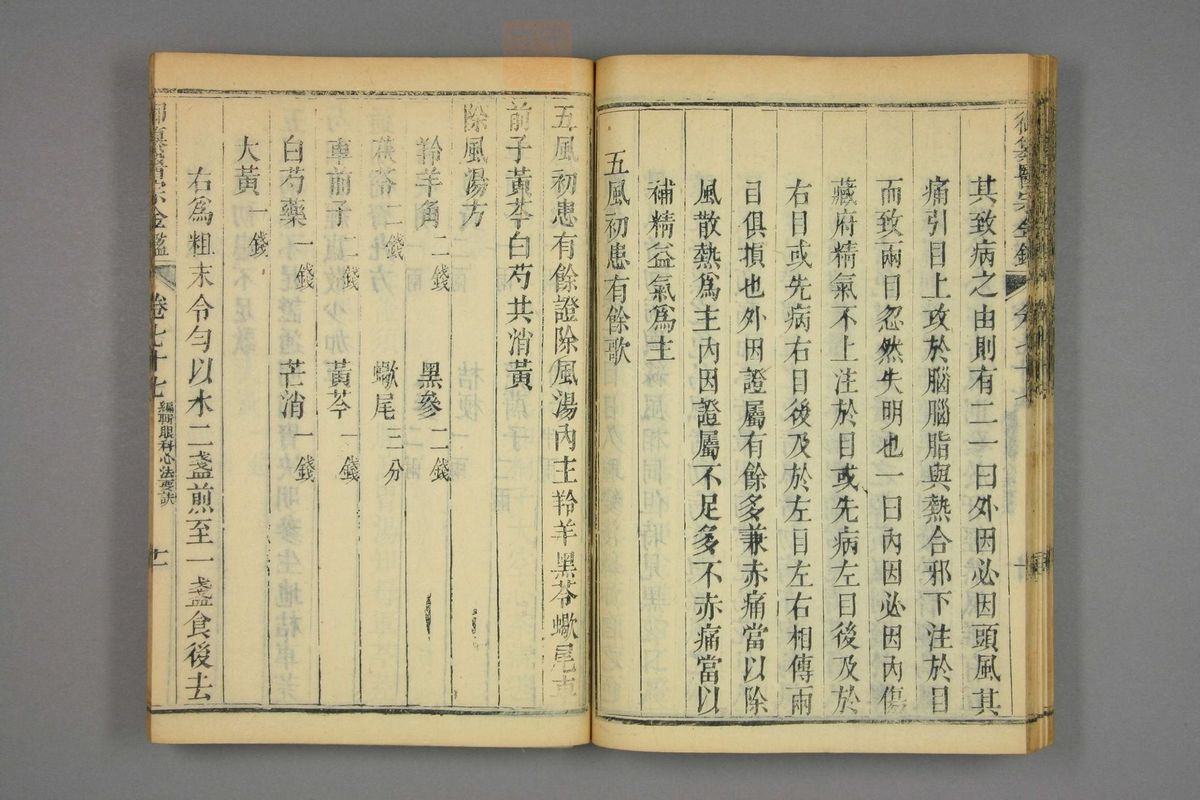 其致病之由則有二一曰外因必因頭風其
痛引目上攻於腦腦脂與熱合邪下注於目
而致兩目忽然失明也一曰內因必因內傷
藏府精氣不上注於目或先病左目後及於
右目或先病右目後及於左目左右相傳兩
目俱損也外因證屬有餘多兼赤痛當以除
風散熱為主內因證屬不足多不赤痛當以
補精益氣為主
五風初患有餘歌
五風初患有餘證除風湯內主羚羊黑參蠍尾車
前子黃芩白芍共消黃
除風湯方
羚羊角二錢 黑參二錢
茯苓二錢 蠍尾三分
車前子一錢 黃芩一錢
白芍藥一錢 芒消一錢
大黃一錢
右為粗末令勻以水二盞煎至一盞食後去
御纂醫宗金鑑 卷七十七 編輯眼科心法要訣 十一